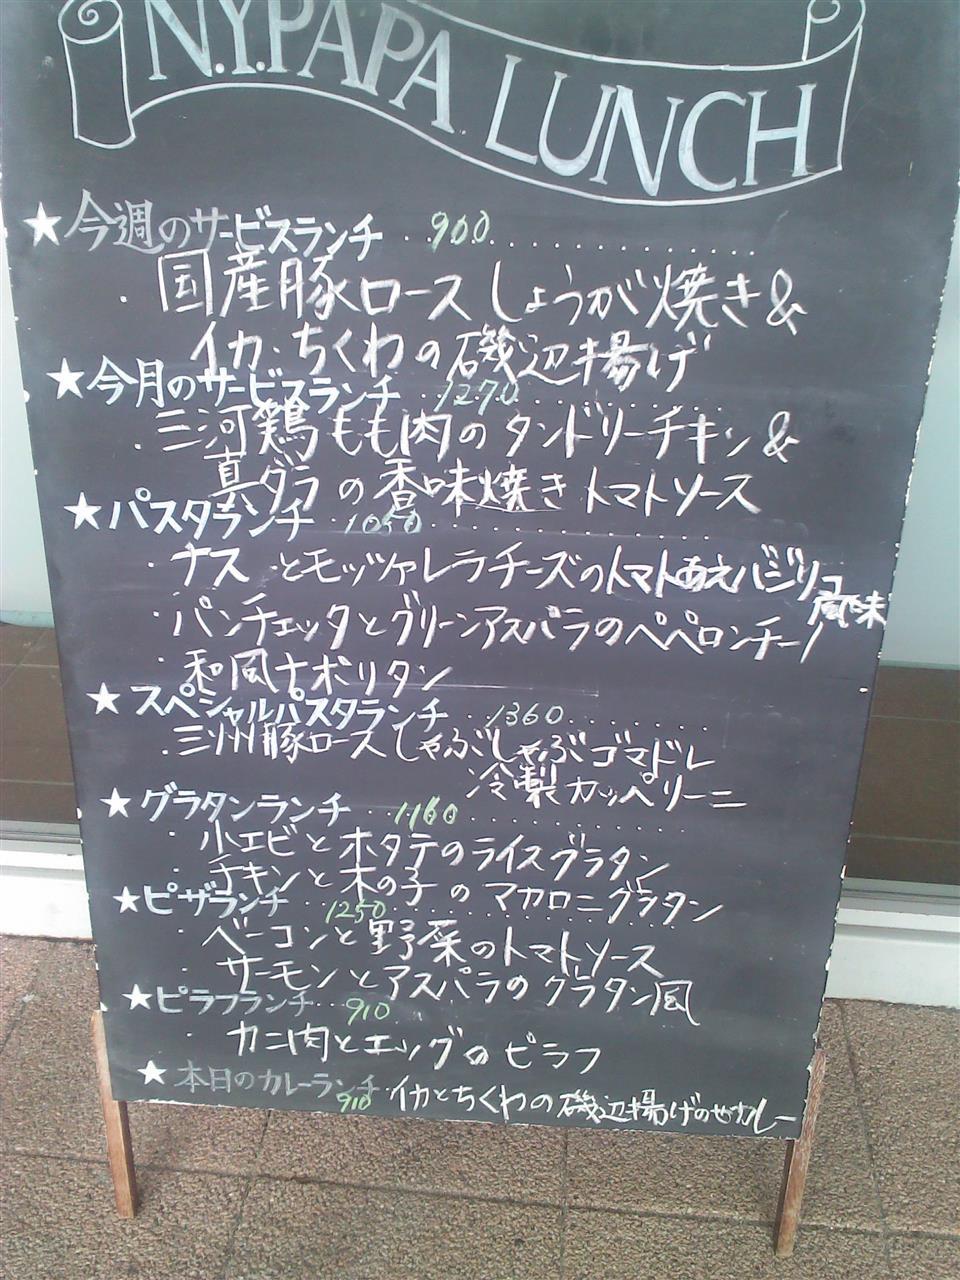 N.Y.PAPA LUNCH
★今週のサービスランチ 900
・国産豚ロースしょうが焼き&
イカ・ちくわの磯辺揚げ
★今月のサービスランチ 1270
・三河鶏もも肉のタンドリーチキン&
真ダラの香味焼きトマトソース
★パスタランチ 1050
・ナスとモッツァレラチーズのトマトあえバジリコ風味
・パンチェッタとグリーンアスパラのペペロンチーノ
・和風ナポリタン
★スペシャルパスタランチ 1360
・三州豚ロースしゃぶしゃぶゴマドレ
冷製カッペリーニ
★グラタンランチ 1160
・小エビとホタテのライスグラタン
・チキンと木の子のマカロニグラタン
★ピザランチ 1250
・ベーコンと野菜のトマトソース
・サーモンとアスパラのグラタン風
★ピラフランチ 910
・カニ肉とエッグのピラフ
★本日のカレーランチ・イカとちくわの磯辺揚げのせカレー
910